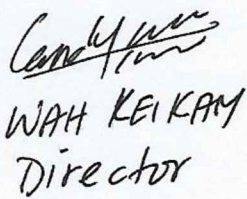 WAH KEI KAM
Director